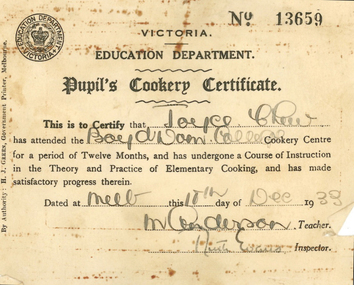 No 13659
EDUCATION DEPARTMENT
VICTORIA
VICTORIA.
EDUCATION DEPARTMENT.
Pupil's Cookery Certificate.
This is to Certify that Joyce
has attended the Cookery Centre
for a period of Twelve Months, and has undergone a Course of Instruction
in the Theory and Practice of Elementary Cooking, and has made
satisfactory progress therein.
Dated at Melb this day of Dec 1933
Teacher.
Inspector.
By Authority: H. J. GREEN, Government Printer, Melbourne.